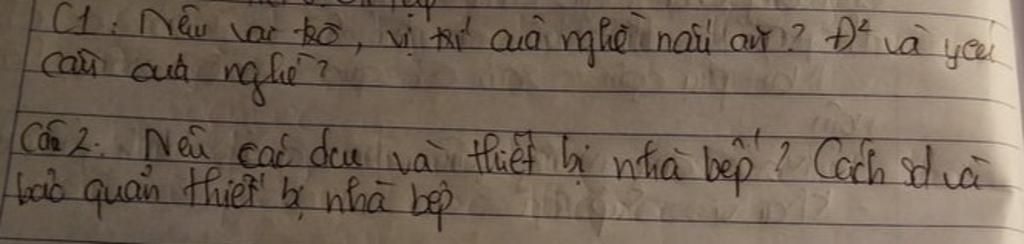 C1: Nêu vai trò, vị trí của nghề nấu ăn? Đ² và yêu
cầu của nghề?
Câu 2: Nêu các dcu và thiết bị nhà bếp? Cách sd và
bảo quản thiết bị nhà bếp